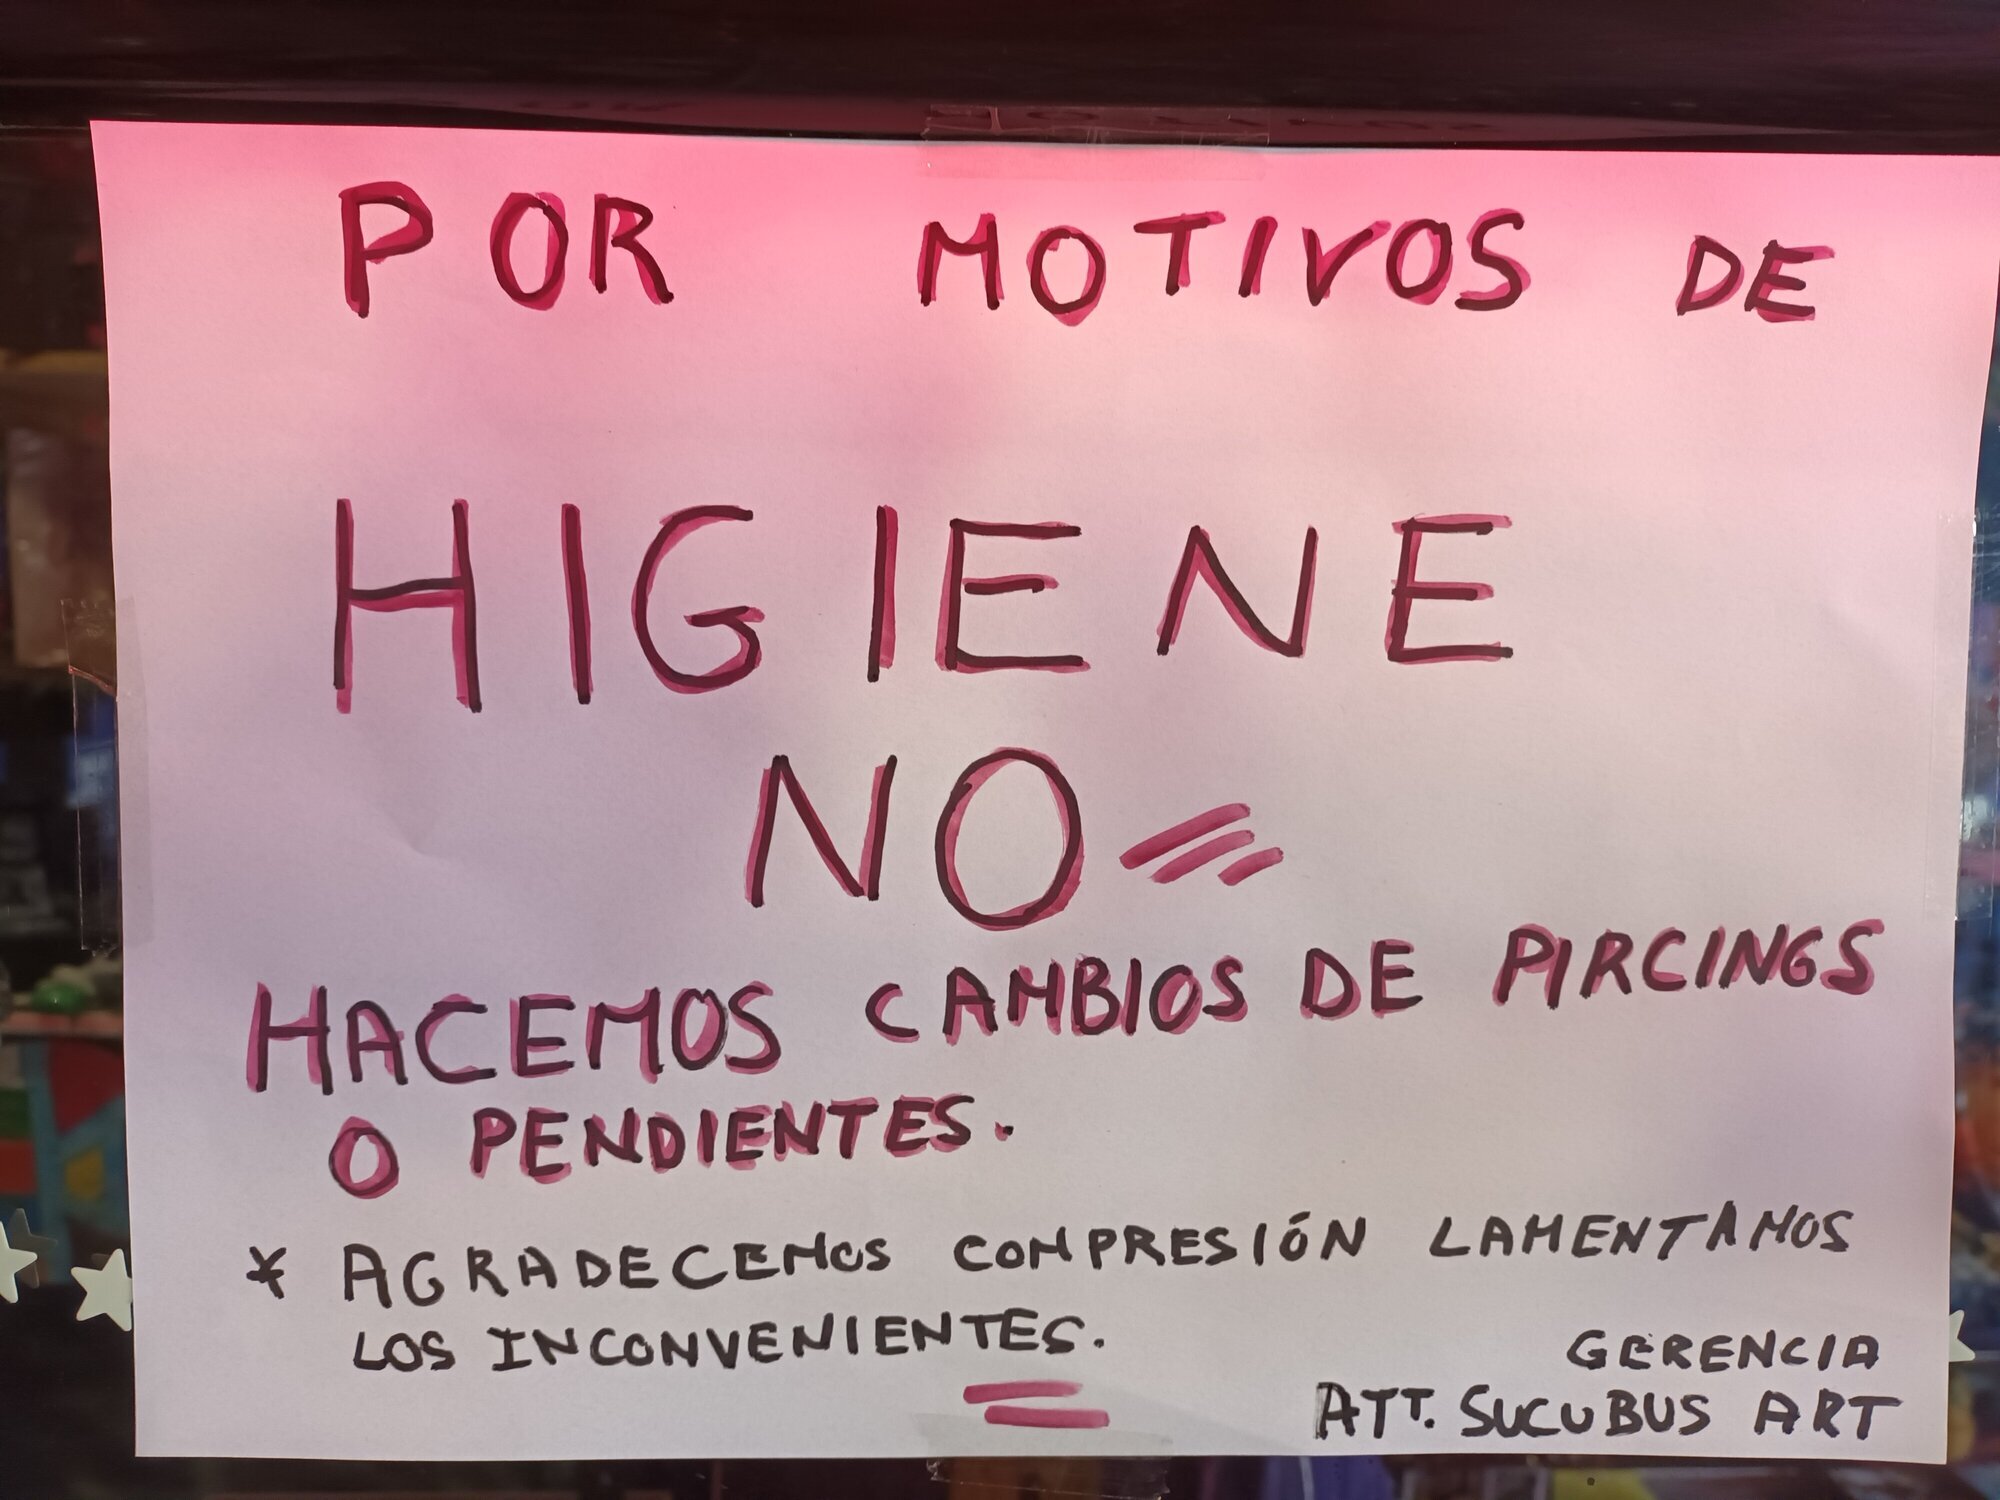 POR MOTIVOS DE
HIGIENE
NO
HACEMOS CAMBIOS DE PIRCINGS
O PENDIENTES.
* AGRADECEMOS COMPRESIÓN LAMENTAMOS
LOS INCONVENIENTES.
GERENCIA
ATT. SUCUBUS ART